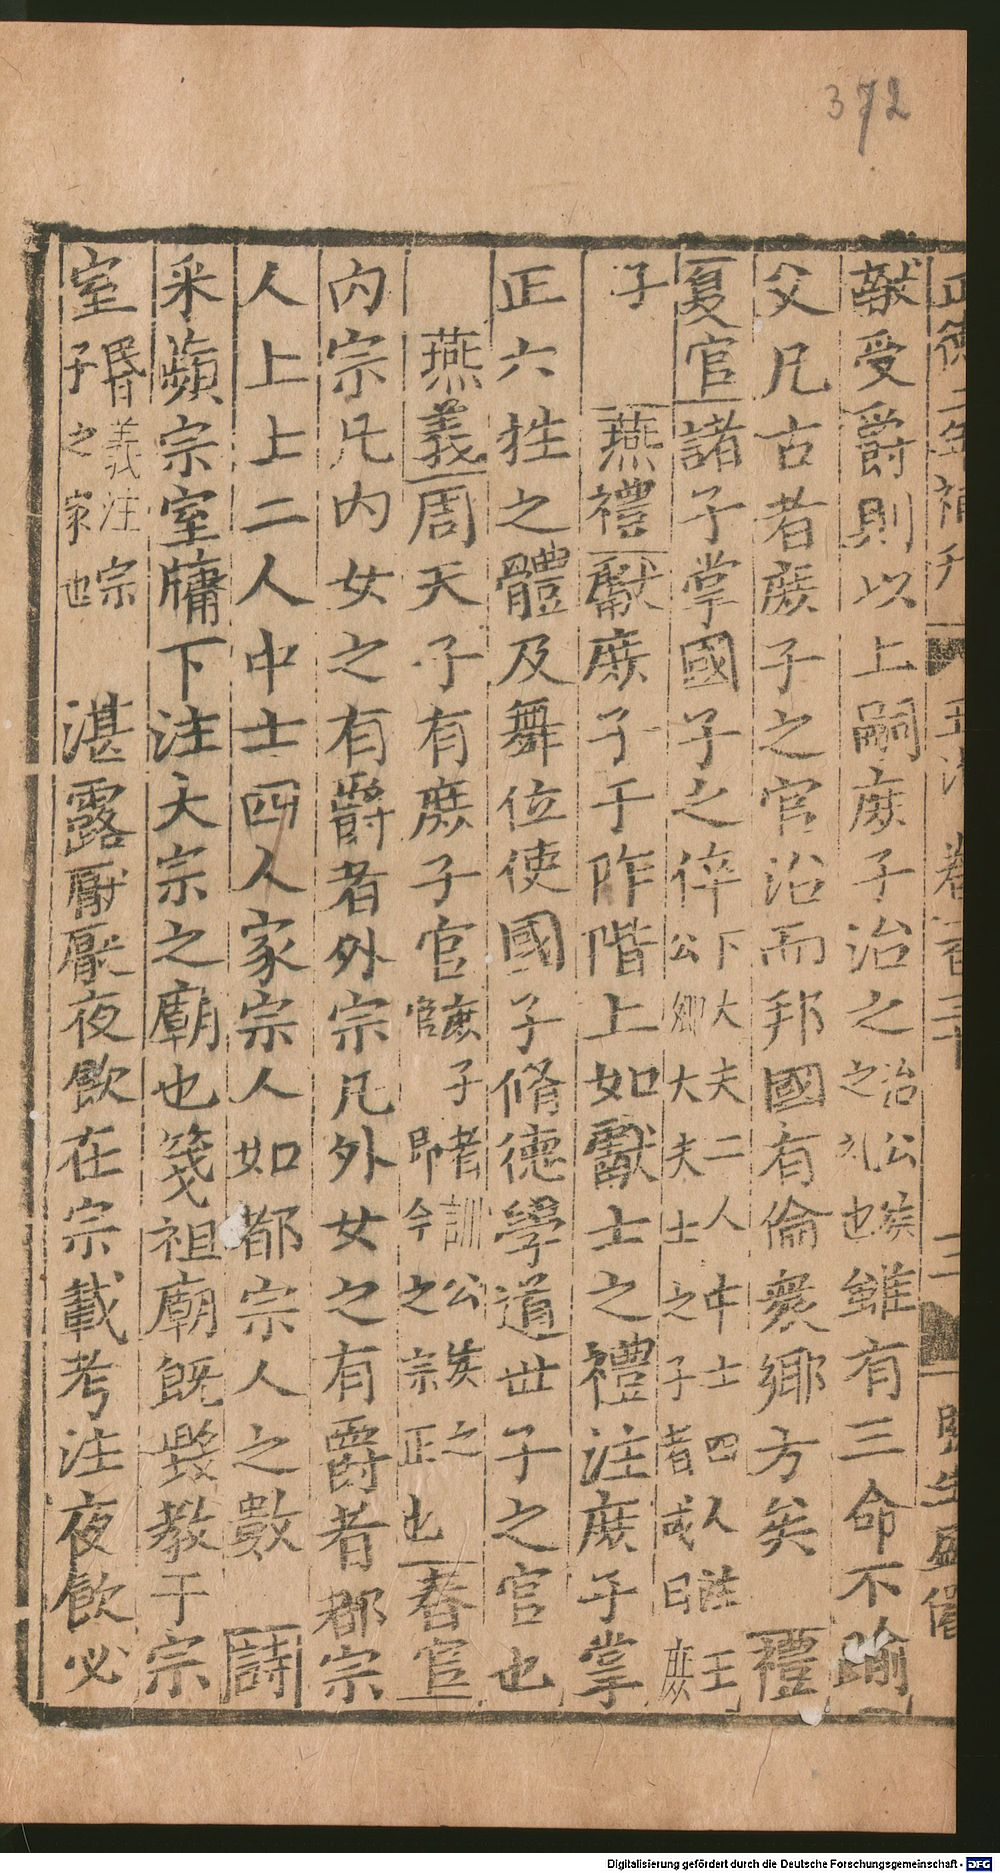 372
正德二年補刊 玉海 卷百三十 三
獻受爵則以上嗣庶子治之治公族之礼也雖有三命不踰
父凡古者庶子之官治而邦國有倫衆鄉方矣禮
夏官諸子掌國子之倅下大夫二人中士四人注王公卿大夫士之子者或曰庶
子 燕禮獻庶子于阼階上如獻士之禮注庶子掌
正六牲之體及舞位使國子脩德學道世子之官也
燕義周天子有庶子官庶子者訓公族之官即今之宗正也春官
內宗凡內女之有爵者外宗凡外女之有爵者都宗
人上士二人中士四人家宗人如都宗人之數 詩
采蘋宗室牖下注大宗之廟也箋祖廟旣毀教于宗
室昏義注宗子之家也 湛露厭厭夜飲在宗載考注夜飲必
Digitalisierung gefördert durch die Deutsche Forschungsgemeinschaft - DFG